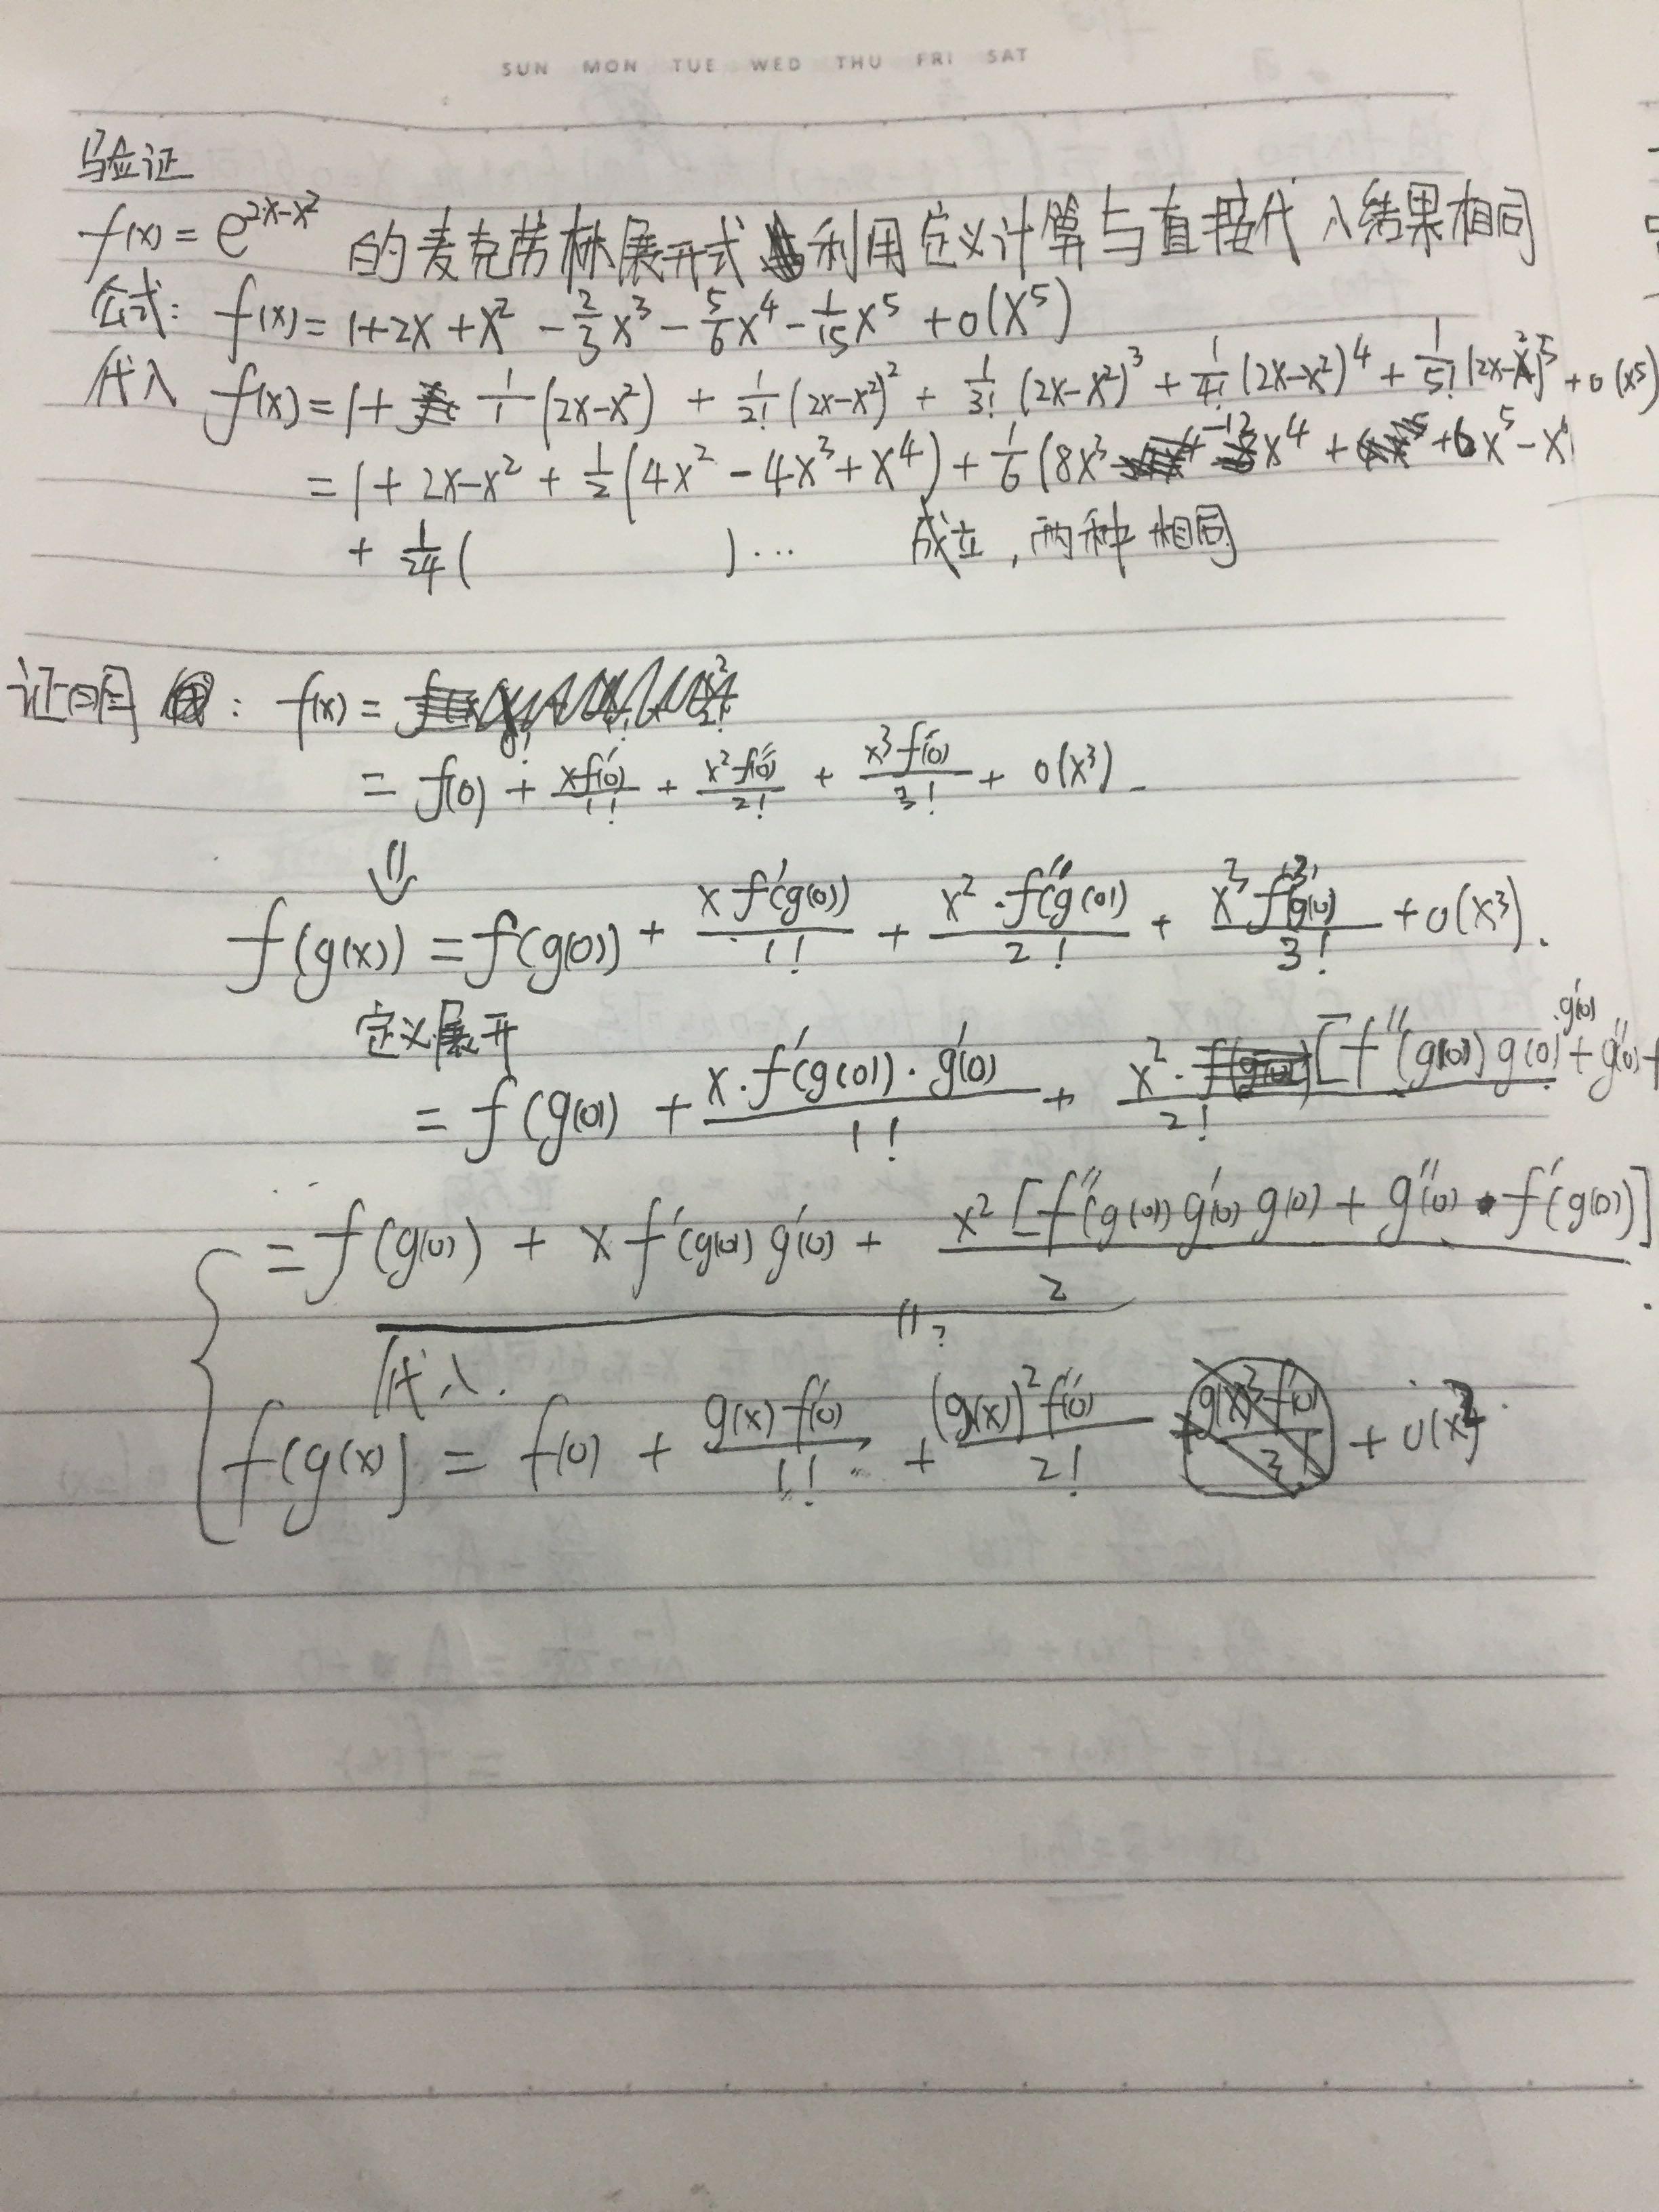 SUN MON TUE WED THU FRI SAT
验证
f(x) = e^{2x-x²} 的麦克劳林展开式 利用定义计算与直接代入结果相同
公式: f(x) = 1+2x+x² - 2/3 x³ - 5/6 x⁴ - 1/15 x⁵ + o(x⁵)
代入 f(x) = 1 + 1/1 (2x-x²) + 1/2! (2x-x²)² + 1/3! (2x-x²)³ + 1/4! (2x-x²)⁴ + 1/5! (2x-x²)⁵ + o(x⁵)
= 1 + 2x-x² + 1/2 (4x² - 4x³ + x⁴) + 1/6 (8x³ -12x⁴ + 6x⁵ - x⁶
+ 1/24 ( ) ... 成立, 两种相同
证明 : f(x) =
= f(0) + xf'(0)/1! + x²f''(0)/2! + x³f'''(0)/3! + o(x³)
⇓
f(g(x)) = f(g(0)) + x·f'(g(0))/1! + x²·f''(g(0))/2! + x³f⁽³⁾(g(0))/3! + o(x³).
定义展开
= f(g(0)) + x·f'(g(0))·g'(0)/1! + x²·[f''(g(0))g'(0)g'(0) + g''(0)·f /2!
= f(g(0)) + xf'(g(0))g'(0) + x²[f''(g(0))g'(0)g(0) + g''(0)·f'(g(0))]/2
|| ?
代入.
f(g(x)) = f(0) + g(x)f'(0)/1! + (g(x))²f''(0)/2! + o(x²)